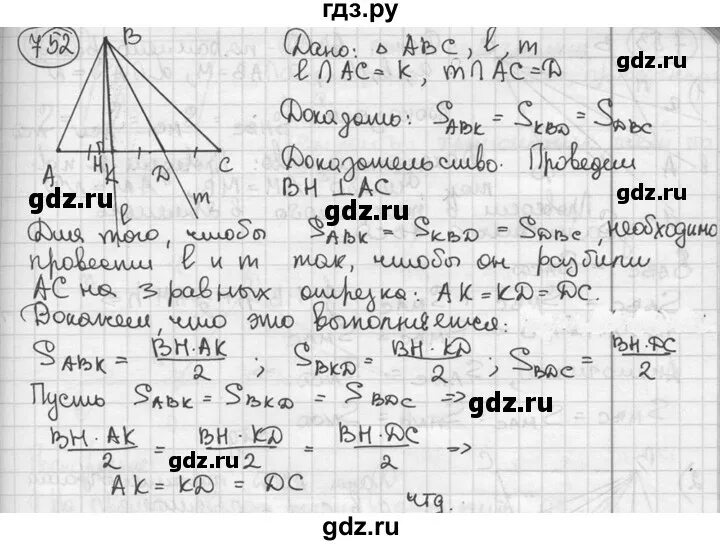 гдз.ру
752
B
Дано: △ ABC, l, m
l ∩ AC = K, m ∩ AC = D
gdz.ru
Доказать: S_ABK = S_KBD = S_DBC
gdz.ru
A H K D C
Доказательство. Проведем
BH ⊥ AC
gdz.ru
l m
gdz.ru
Для того, чтобы S_ABK = S_KBD = S_DBC, необходимо
провести l и m так, чтобы он разбили
AC на 3 равных отрезка: AK = KD = DC.
Докажем, что это выполняется:
S_ABK = BH·AK/2 ; S_BKD = BH·KD/2 ; S_BDC = BH·DC/2
Пусть S_ABK = S_BKD = S_BDC =>
gdz.ru
BH·AK/2 = BH·KD/2 = BH·DC/2 =>
gdz.ru
AK = KD = DC
чтд.
gdz.ru